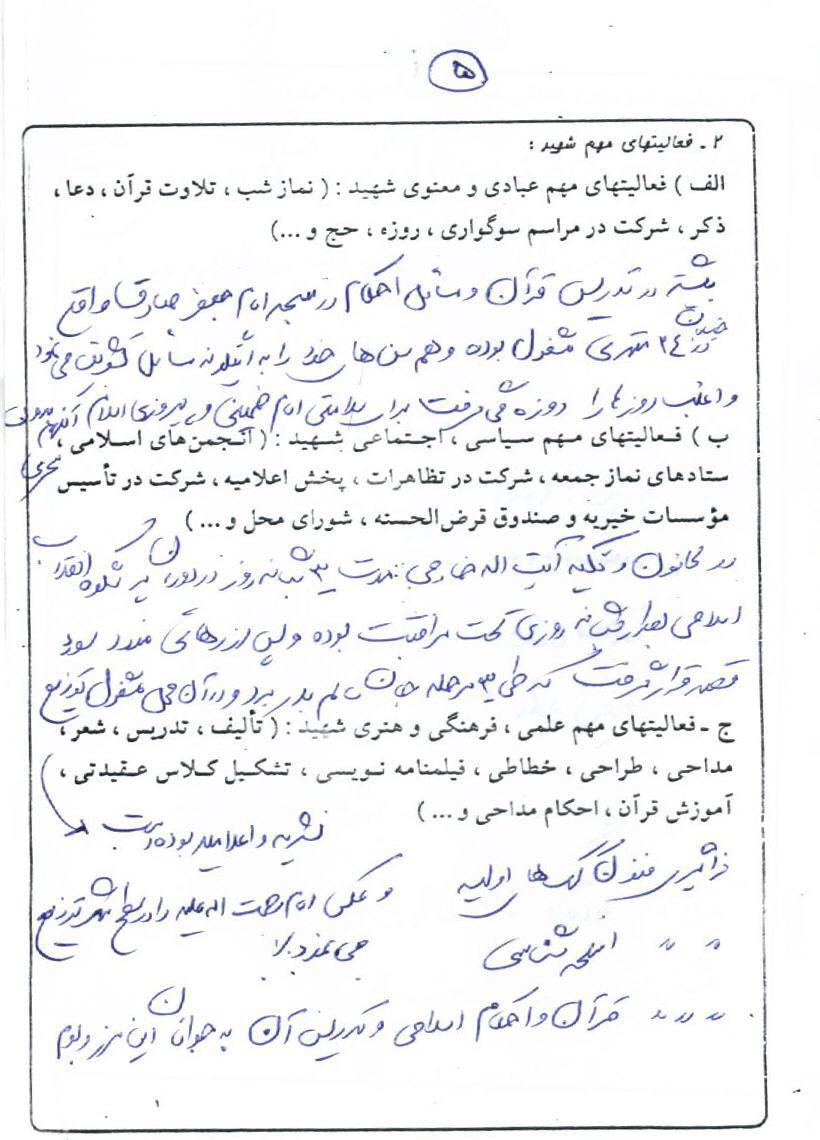 ۵
۲ ـ فعالیتهای مهم شهید :
الف ) فعالیتهای مهم عبادی و معنوی شهید : ( نماز شب ، تلاوت قرآن ، دعا ،
ذکر ، شرکت در مراسم سوگواری ، روزه ، حج و ...)
در تدریس قرآن و مسائل احکام در مسجد امام جعفر صادق واقع
در ۳۴ متری مشغول بوده و هم سن های خود را به اینگونه مسائل تشویق می نمود
و اغلب روزها را روزه می گرفت برای سلامتی امام خمینی و پیروزی اسلام آنهم بدون
سحری
ب ) فعالیتهای مهم سیاسی ، اجتماعی شهید : ( انجمن‌های اسلامی ،
ستادهای نماز جمعه ، شرکت در تظاهرات ، پخش اعلامیه ، شرکت در تأسیس
مؤسسات خیریه و صندوق قرض‌الحسنه ، شورای محل و ... )
در کانون و تکیه آیت اله بمدت ۳ شبانه روز در دوران پر شکوه انقلاب
اسلامی بوده و پس از رهائی مورد سوء
قصد قرار گرفت که طی ۳ مرحله جان سالم بدر برد و در آن محل مشغول توزیع
نشریه و اعلامیه بوده است
ج ـ فعالیتهای مهم علمی ، فرهنگی و هنری شهید : ( تألیف ، تدریس ، شعر ،
مداحی ، طراحی ، خطاطی ، فیلمنامه نویسی ، تشکیل کلاس عقیدتی ،
آموزش قرآن ، احکام مداحی و ... )
فراگیری فنون کمک های اولیه
و عکس امام رحمت اله علیه را در سطح شهر توزیع
می نمود
〃 〃 اسلحه شناسی
〃 〃 〃 قرآن و احکام اسلامی و تدریس آن به جوانان این مرز و بوم